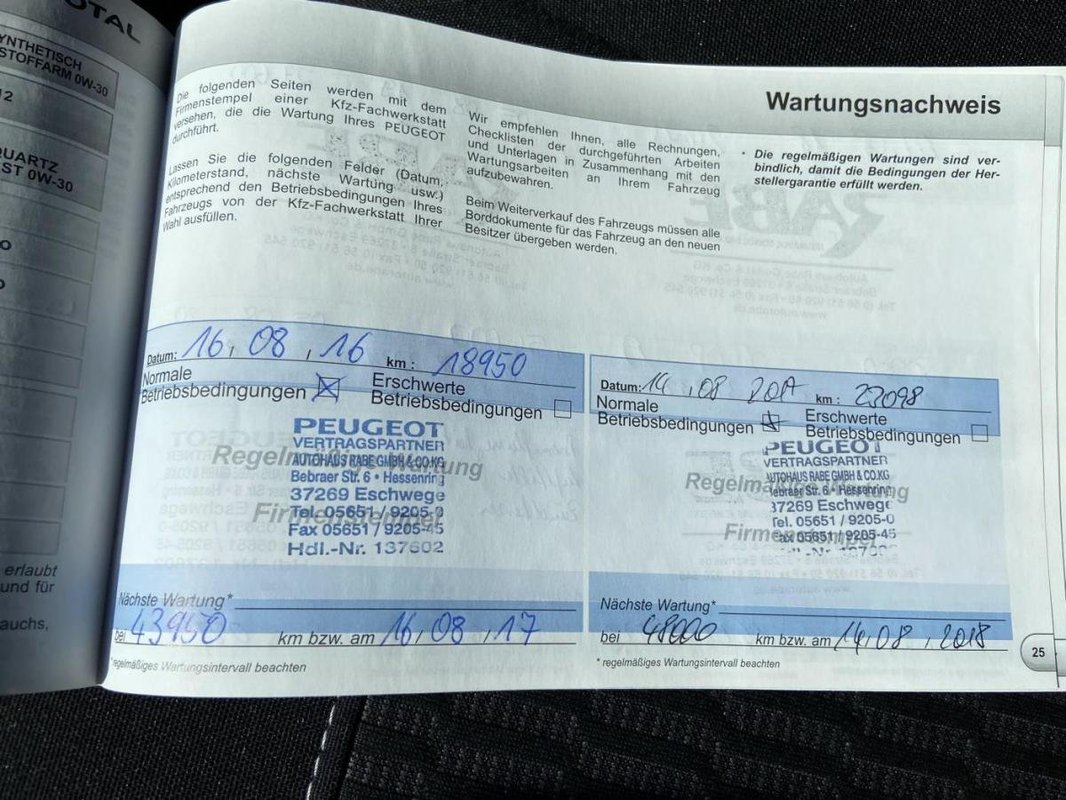 OTAL
YNTHETISCH
STOFFARM 0W-30
12
QUARTZ
ST 0W-30
erlaubt
und für
auchs,
Wartungsnachweis
Die folgenden Seiten werden mit dem
Firmenstempel einer Kfz-Fachwerkstatt
versehen, die die Wartung Ihres PEUGEOT
durchführt.
Lassen Sie die folgenden Felder (Datum,
Kilometerstand, nächste Wartung usw.)
entsprechend den Betriebsbedingungen Ihres
Fahrzeugs von der Kfz-Fachwerkstatt Ihrer
Wahl ausfüllen.
Wir empfehlen Ihnen, alle Rechnungen,
Checklisten der durchgeführten Arbeiten
und Unterlagen in Zusammenhang mit den
Wartungsarbeiten an Ihrem Fahrzeug
aufzubewahren.
Beim Weiterverkauf des Fahrzeugs müssen alle
Borddokumente für das Fahrzeug an den neuen
Besitzer übergeben werden.
• Die regelmäßigen Wartungen sind ver-
bindlich, damit die Bedingungen der Her-
stellergarantie erfüllt werden.
Datum: 16, 08, 16 km: 18950
Normale
Betriebsbedingungen
Erschwerte
Betriebsbedingungen
Regelmäßige Wartung
Firmenstempel
PEUGEOT
VERTRAGSPARTNER
AUTOHAUS RABE GMBH & CO.KG
Bebraer Str. 6 • Hessenring
37269 Eschwege
Tel. 05651 / 9205-0
Fax 05651 / 9205-45
Hdl.-Nr. 137602
Nächste Wartung*
bei 43950 km bzw. am 16, 08, 17
* regelmäßiges Wartungsintervall beachten
Datum: 14, 08 km:
Normale
Betriebsbedingungen
Erschwerte
Betriebsbedingungen
Regelmäßige Wartung
Firmenstempel
PEUGEOT
VERTRAGSPARTNER
AUTOHAUS RABE GMBH & CO.KG
Bebraer Str. 6 • Hessenring
37269 Eschwege
Tel. 05651 / 9205-0
Fax 05651 / 9205-45
Nächste Wartung*
bei 48000 km bzw. am 14, 08, 2018
* regelmäßiges Wartungsintervall beachten
25